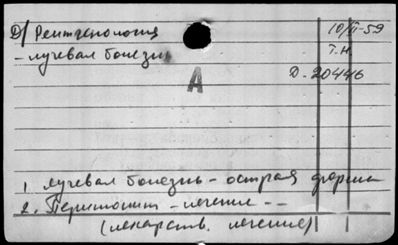 Д/ Рентгенология 10/II-59
- лучевая болезнь Т.Н.
Д-20446
А
1. Лучевая болезнь - острая форма
2. Перитонит - лечение --
(лекарств. лечение)